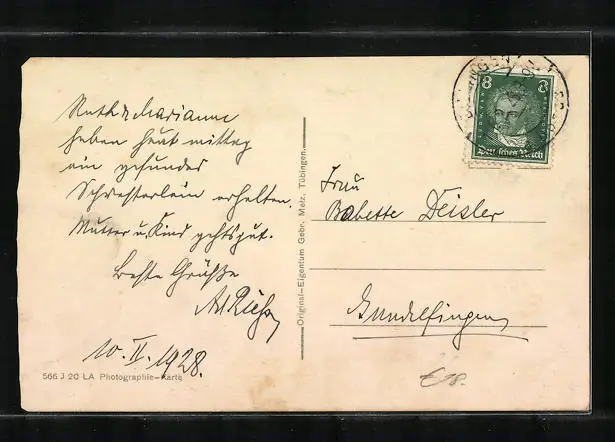 Ruth & Marianne
haben heut mittag
ein gesundes
Schwesterlein erhalten.
Mutter u. Kind gehts gut.
Beste Grüße
10. II. 1928.
566 J 20 LA Photographie-Karte
Original-Eigentum Gebr. Metz, Tübingen.
8 8
Deutsches Reich
Frau
Babette Deisler
Gundelfingen